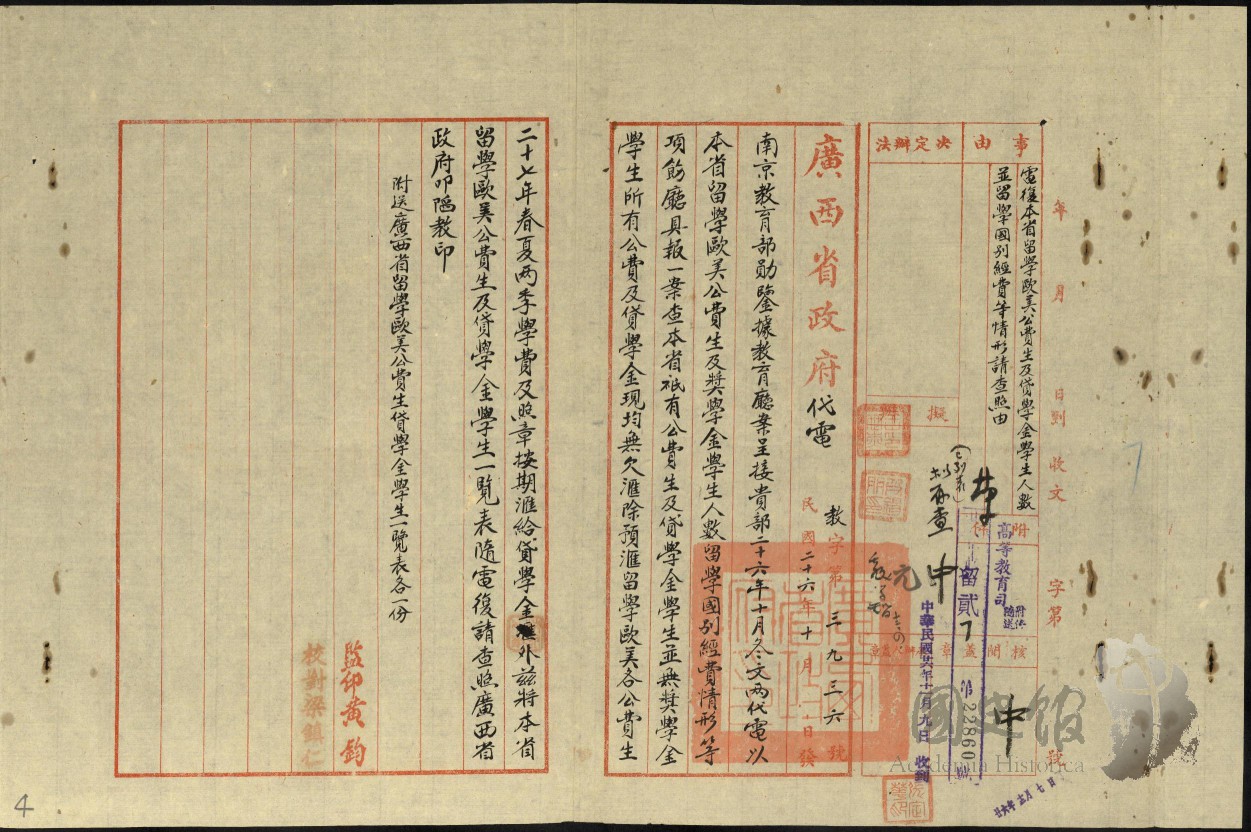 年 月 日到 收文 字第 號
事由
電復本省留學歐美公費生及貸學金學生人數
並留學國別經費等情形請查照由
附件
決定辦法
擬
核閱蓋章
高等教育司
留貳7
第22860號
中華民國廿六年十一月九日收到
廣西省政府代電
教字第三九三六號
民國二十六年十月 日發
南京教育部勛鑒據教育廳案呈接貴部二十六年十月冬文兩代電以
本省留學歐美公費生及獎學金學生人數留學國別經費情形等
項飭廳具報一案查本省祇有公費生及貸學金學生並無獎學金
學生所有公費及貸學金現均無欠滙除預滙留學歐美各公費生
二十七年春夏两季學費及照章按期滙給貸學金外茲將本省
留學歐美公費生及貸學金學生一覽表隨電復請查照廣西省
政府叩 教印
附送廣西省留學歐美公費生貸學金學生一覽表各一份
監印黃鈞
校對梁鎮仁
國史館
Academia Historica
4
7